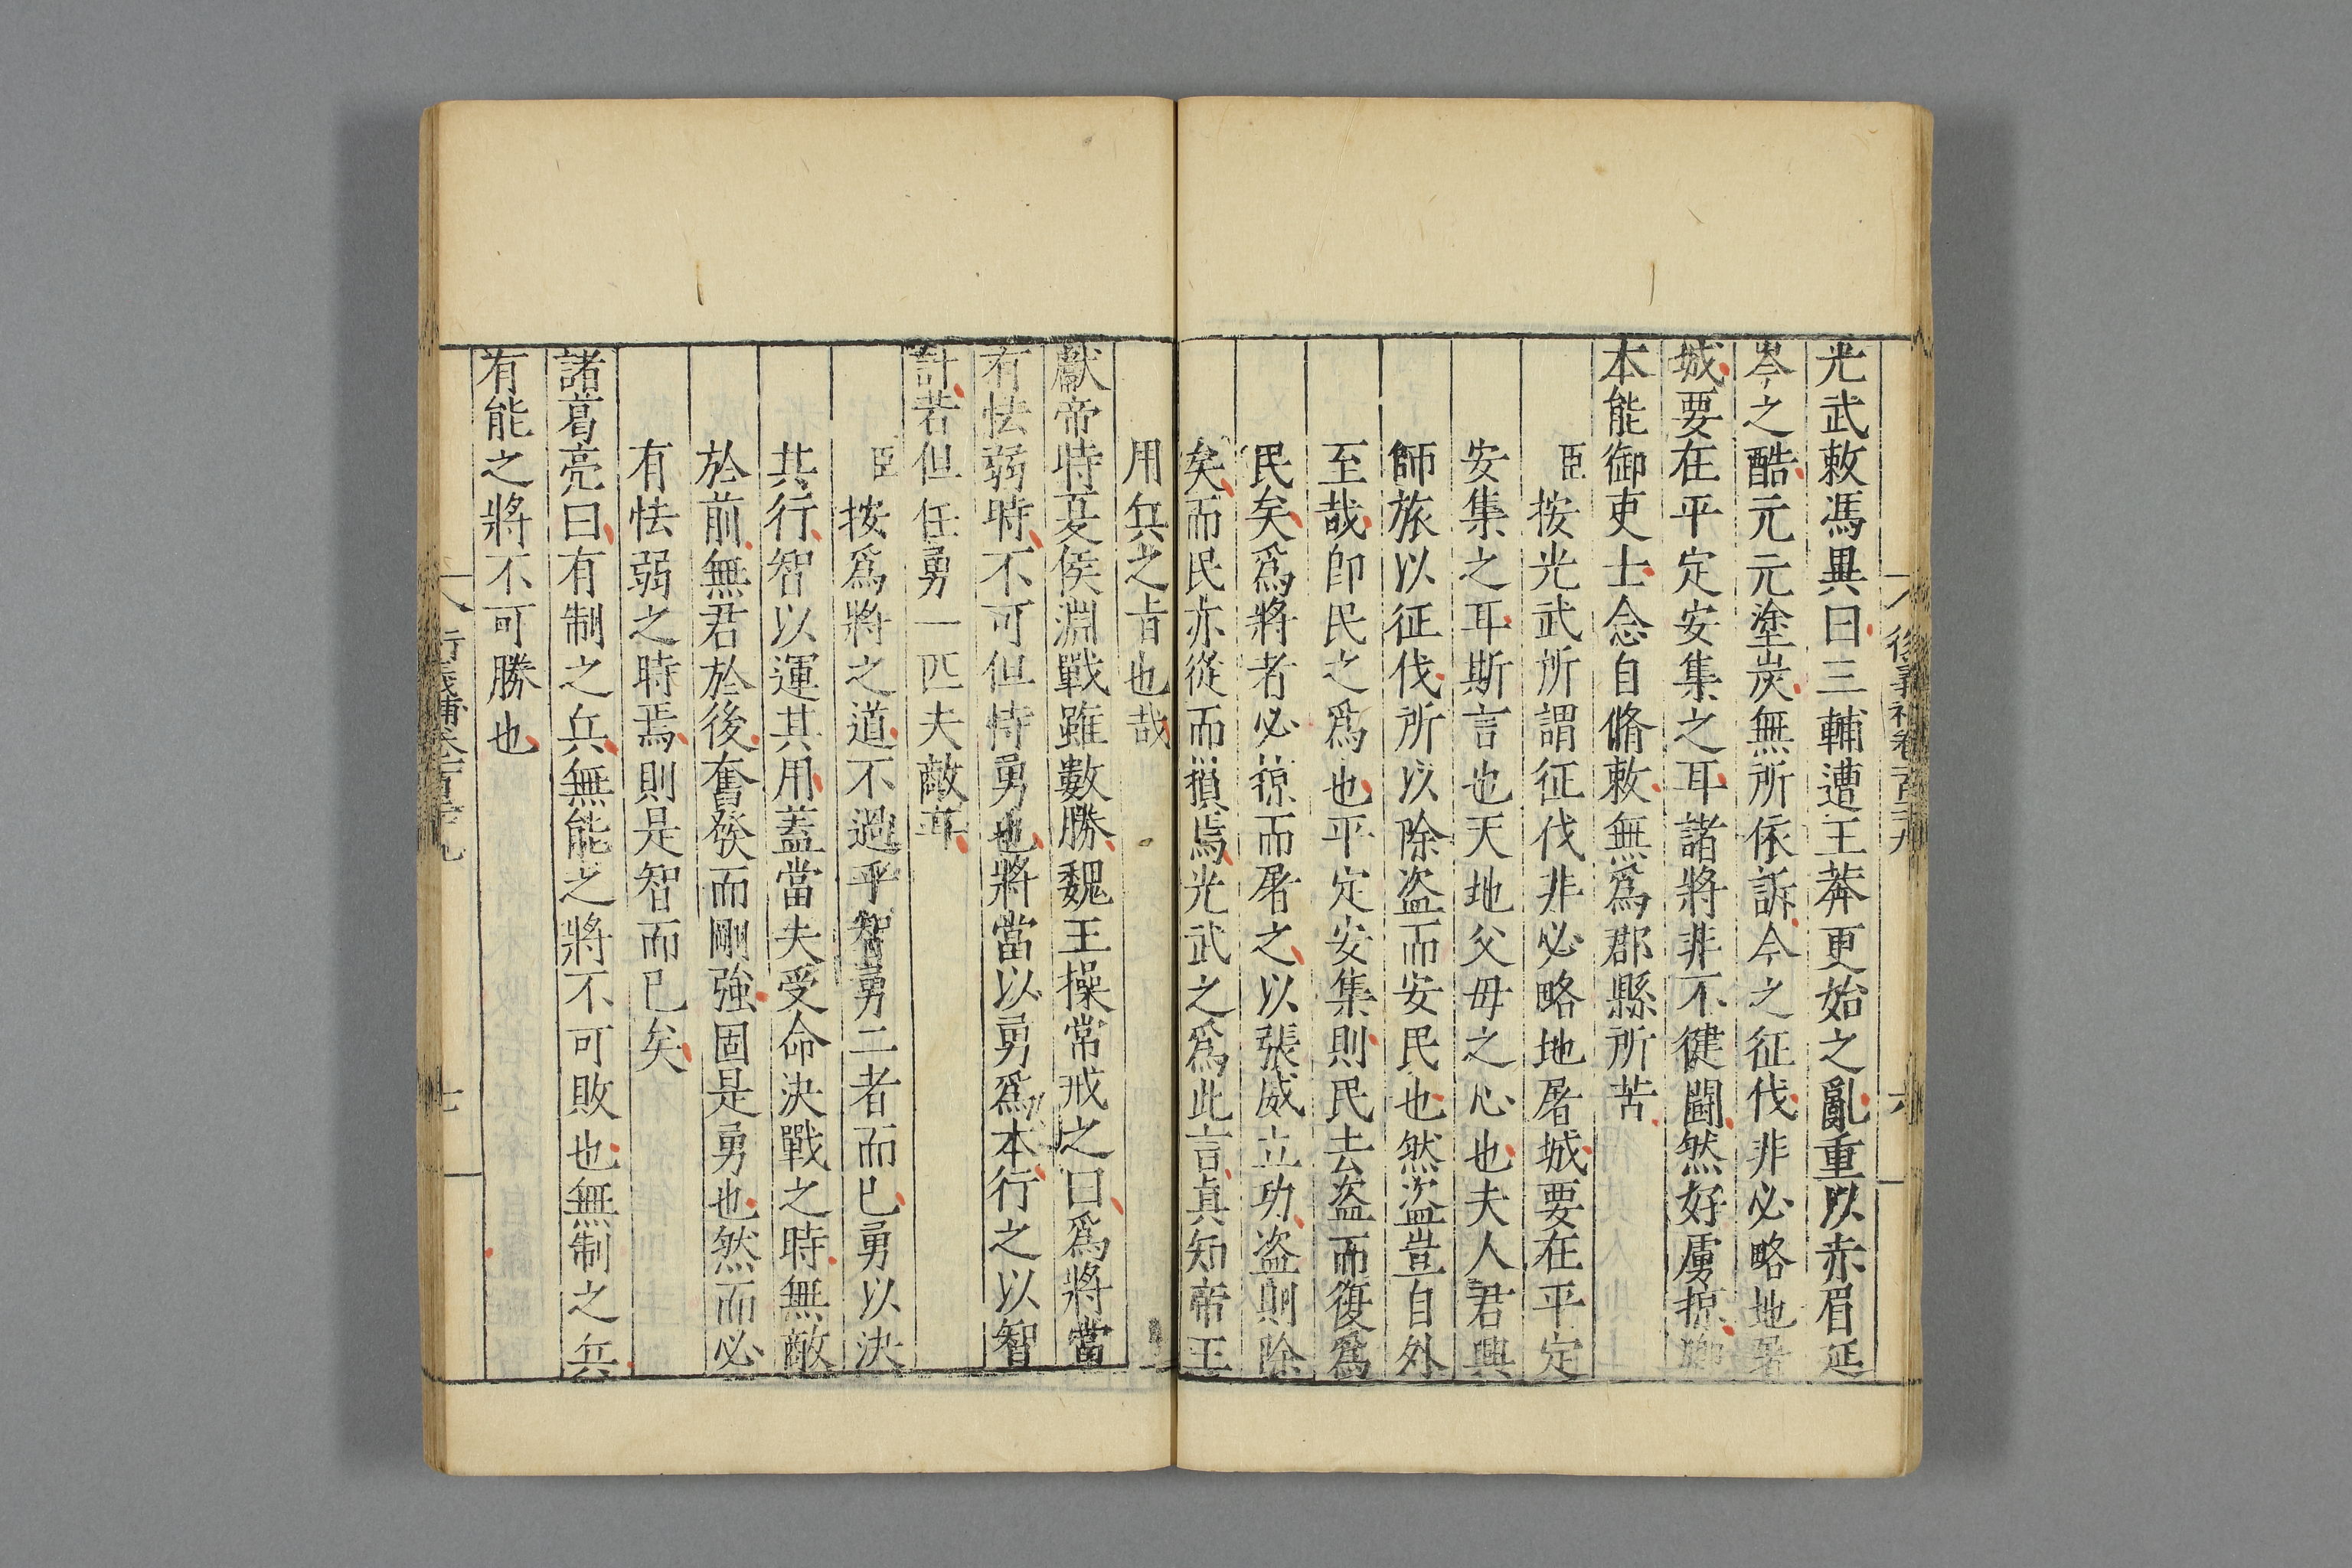 光武敕馮異曰三輔遭王莽更始之亂重以赤眉延
岑之酷元元塗炭無所依訴今之征伐非必略地屠
城要在平定安集之耳諸將非不健鬬然好虜掠卿
本能御吏士念自脩敕無爲郡縣所苦
臣按光武所謂征伐非必略地屠城要在平定
安集之耳斯言也天地父母之心也夫人君興
師旅以征伐所以除盗而安民也然盗豈自外
至哉卽民之爲也平定安集則民去盗而復爲
民矣爲將者必掠而屠之以張威立功盗則除
矣而民亦從而損焉光武之爲此言真知帝王
用兵之㫖也哉
獻帝時夏侯淵戰雖數勝魏王操常戒之曰爲將當
有怯弱時不可但恃勇也將當以勇爲本行之以智
計若但任勇一匹夫敵耳
臣按爲將之道不過乎智勇二者而已勇以決
其行智以運其用蓋當夫受命決戰之時無敵
於前無君於後奮發而剛強固是勇也然而必
有怯弱之時焉則是智而已矣
諸葛亮曰有制之兵無能之將不可敗也無制之兵
有能之將不可勝也